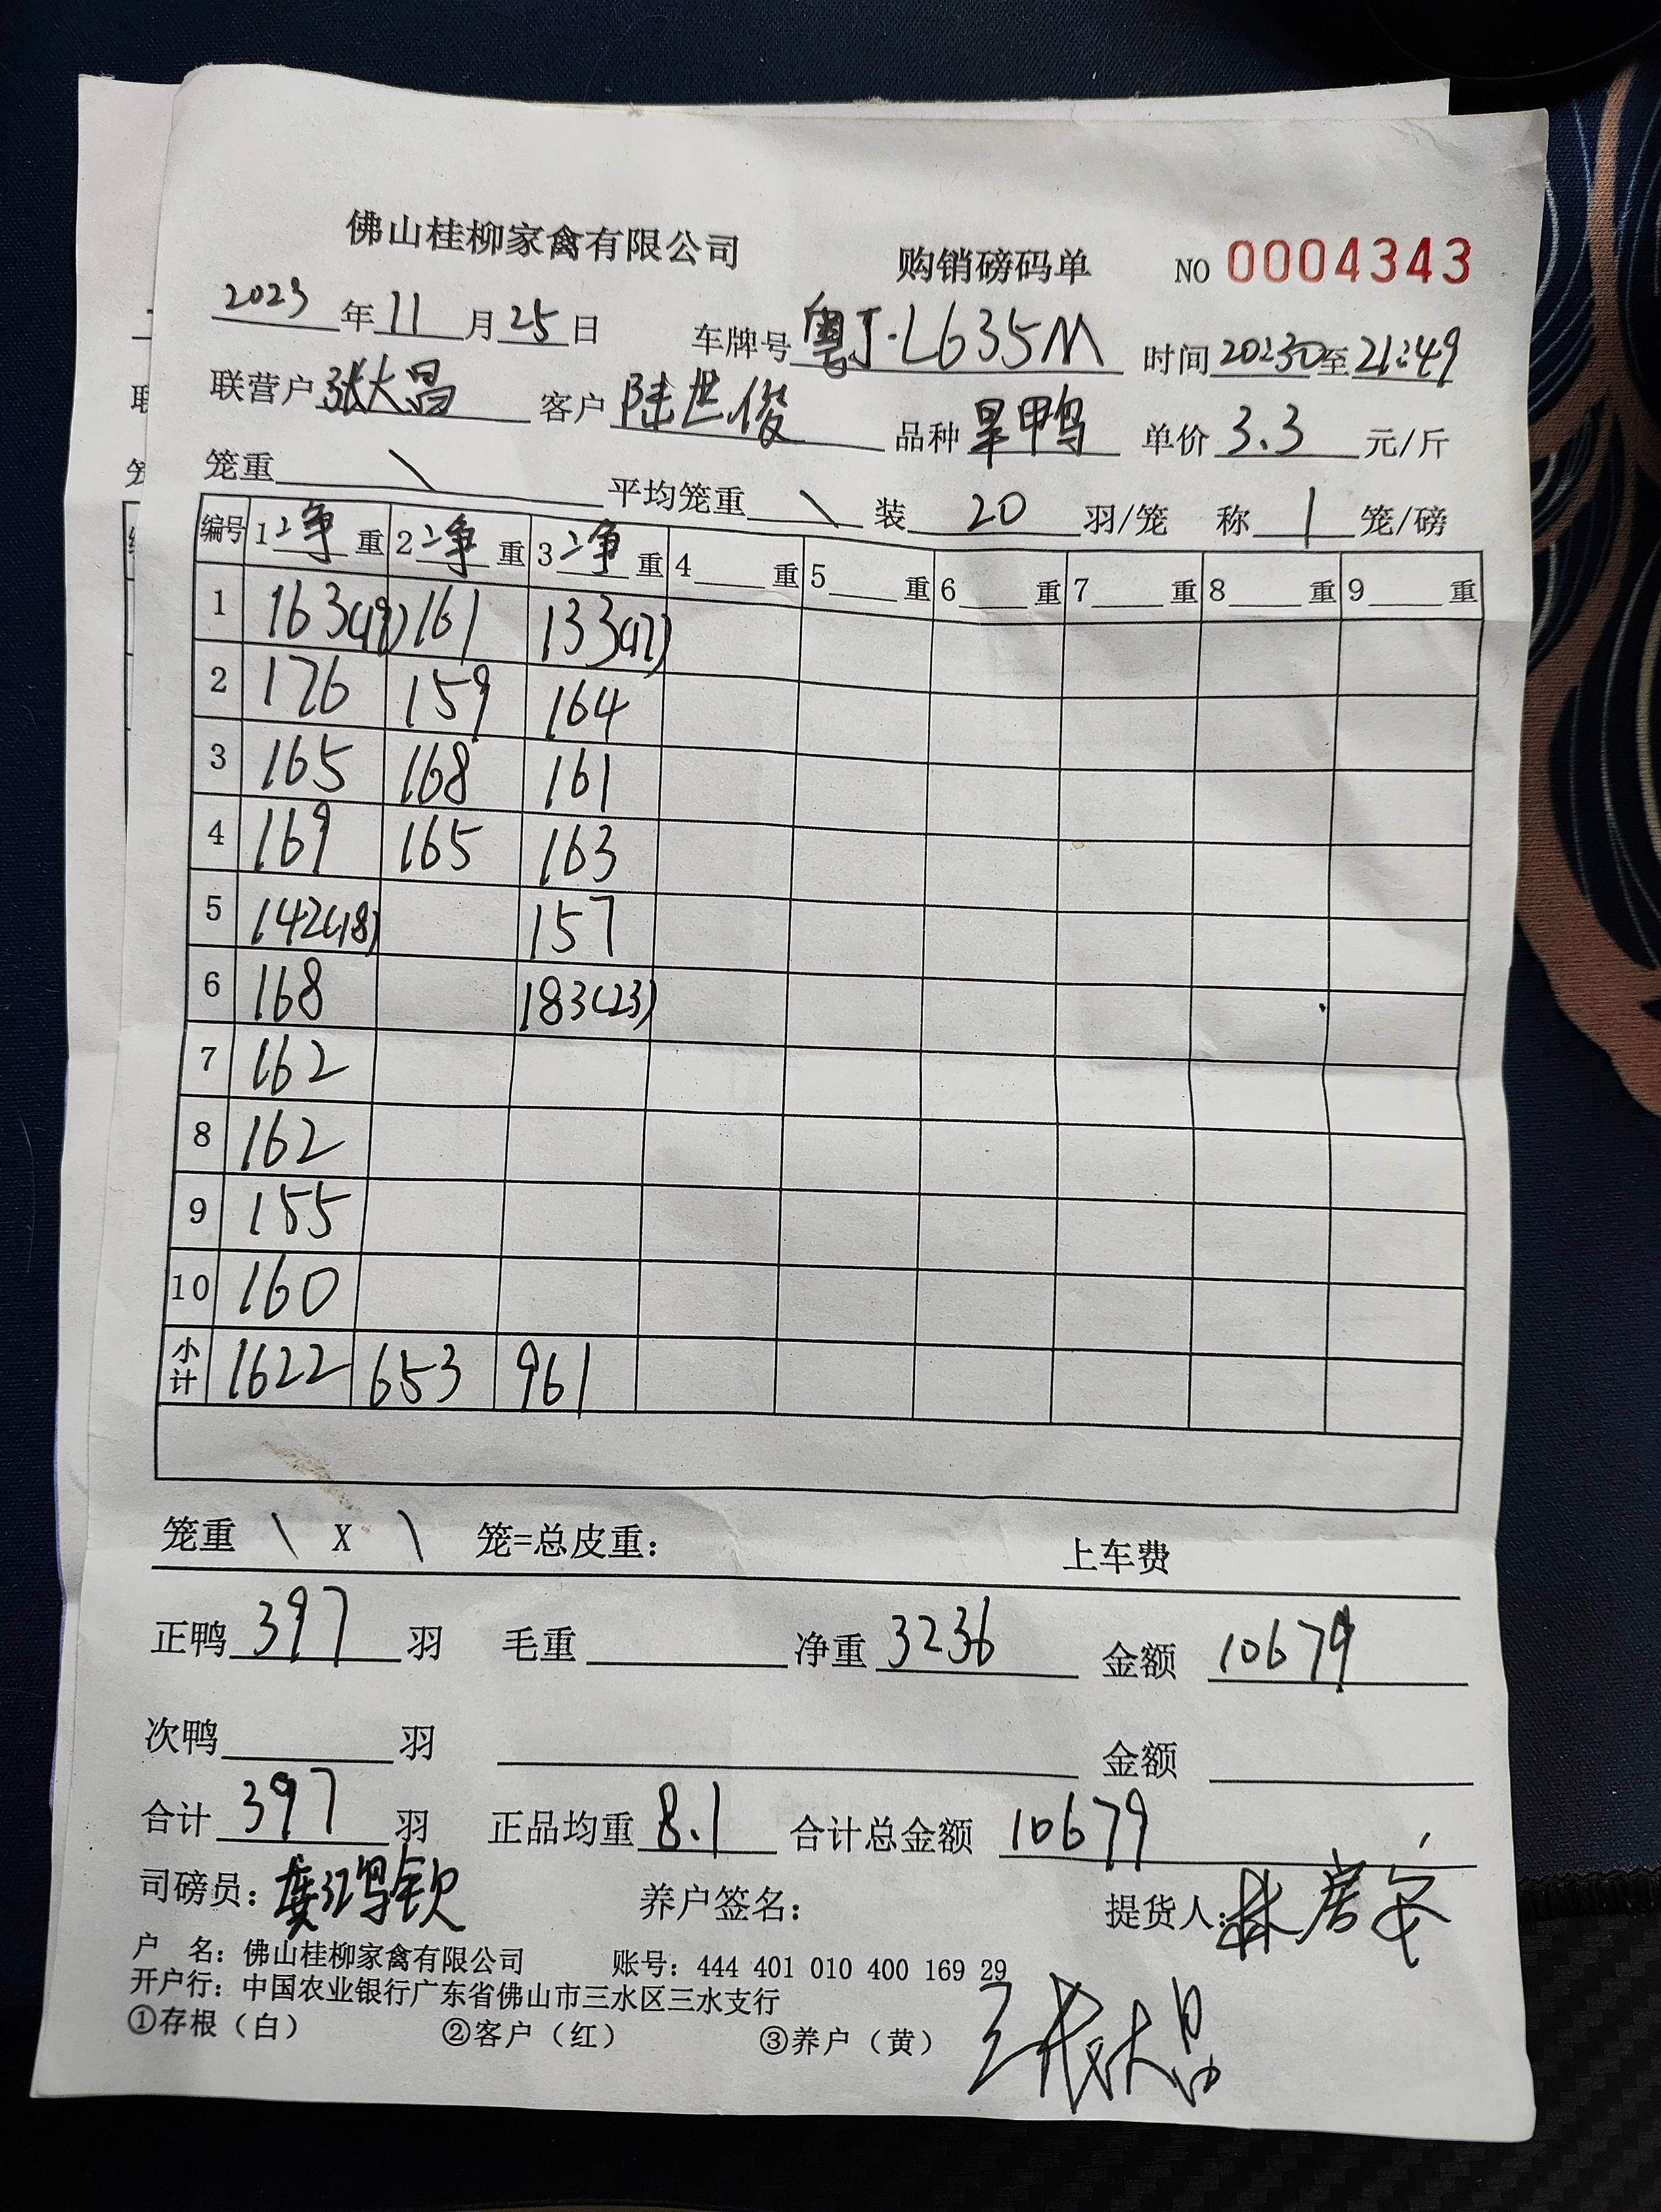 佛山桂柳家禽有限公司 购销磅码单 NO 0004343
2023 年 11 月 25 日 车牌号 粤J·L635M 时间 20:30 至 21:49
联营户 张大昌 客户 陆世俊 品种 旱鸭 单价 3.3 元/斤
笼重 \ 平均笼重 \ 装 20 羽/笼 称 1 笼/磅
编号 1 净 重 2 净 重 3 净 重 4 重 5 重 6 重 7 重 8 重 9 重
1 163(19) 161 133(17)
2 176 159 164
3 165 168 161
4 169 165 163
5 142(18) 157
6 168 183(23)
7 162
8 162
9 155
10 160
小计 1622 653 961
笼重 \ X \ 笼=总皮重: 上车费
正鸭 397 羽 毛重 净重 3236 金额 10679
次鸭 羽 金额
合计 397 羽 正品均重 8.1 合计总金额 10679
司磅员: 养户签名: 提货人:
户 名: 佛山桂柳家禽有限公司 账号: 444 401 010 400 169 29
开户行: 中国农业银行广东省佛山市三水区三水支行
①存根（白） ②客户（红） ③养户（黄）
张大昌